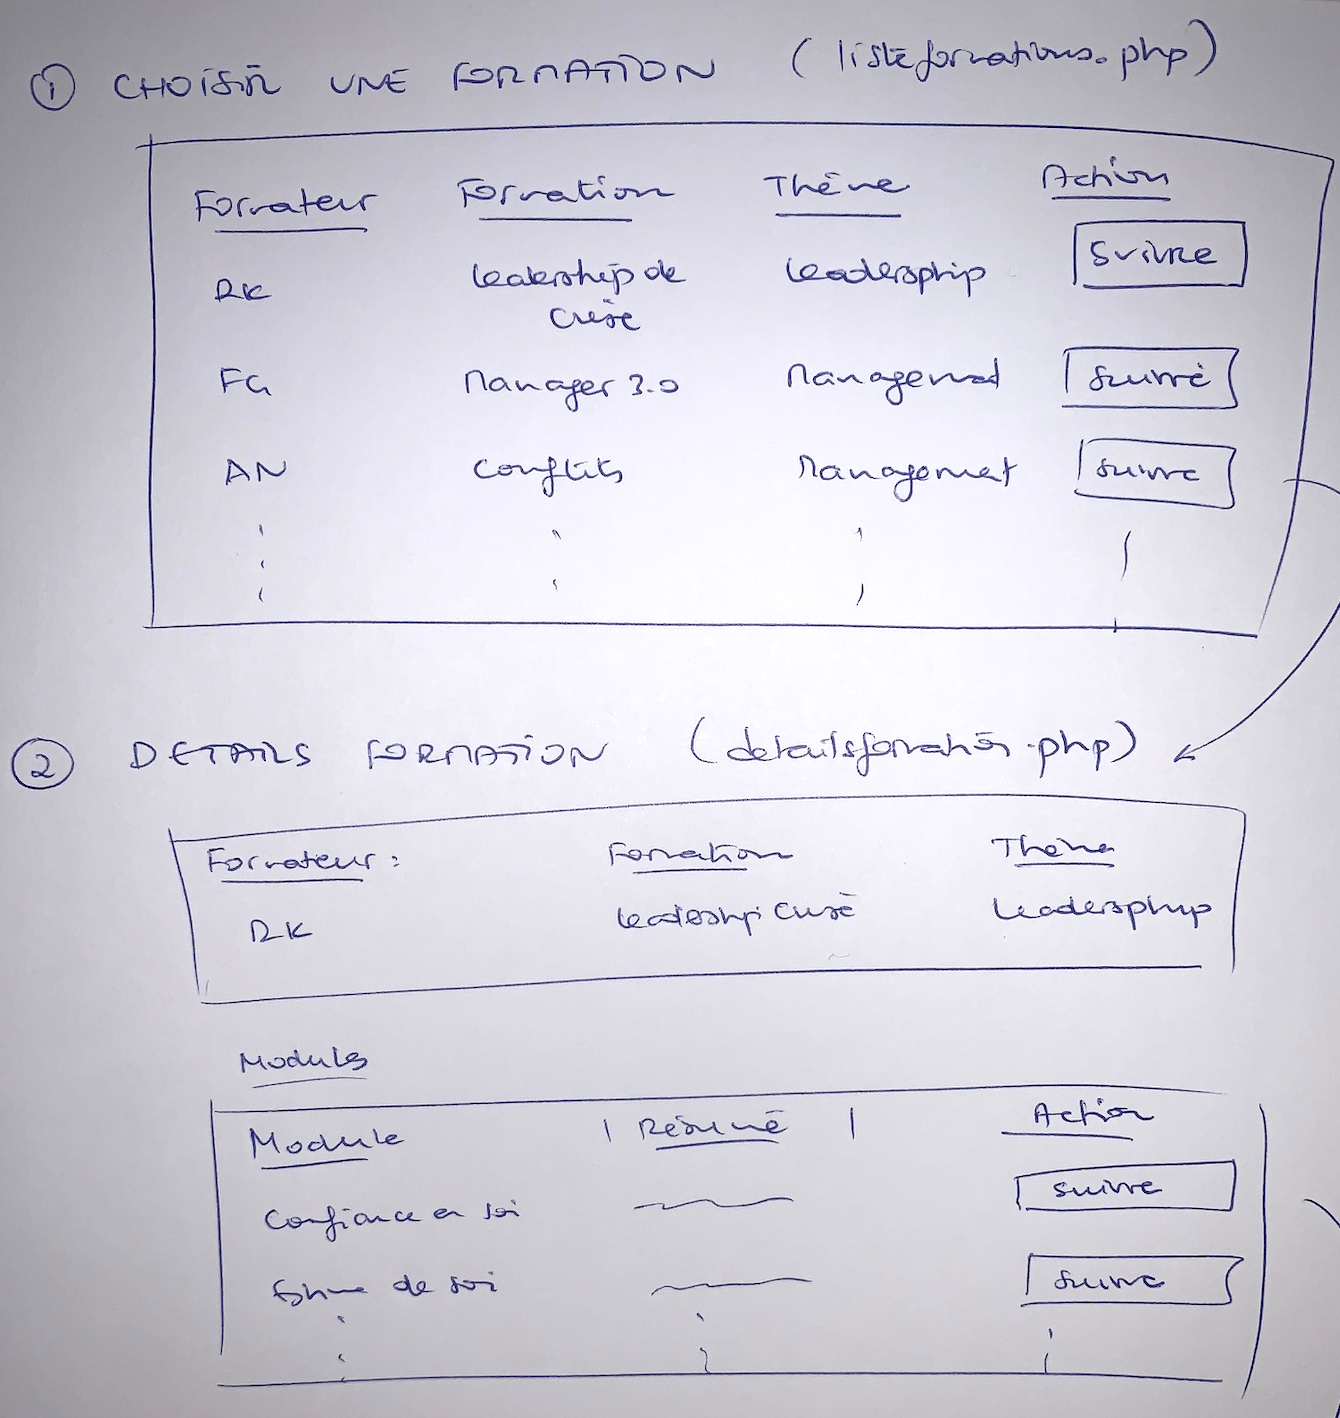 ① CHOISIR UNE FORMATION (listeformations.php)
Formateur Formation Thème Action
RK Leadership de Leadersphip Suivre
crise
FG Manager 3.0 Management Suivre
AN Conflits Management Suivre
② DETAILS FORMATION (detailsformation.php)
Formateur : Formation Thème
RK Leadership crise Leadersphip
Modules
Module | Résumé | Action
Confiance en soi suivre
Estime de soi suivre